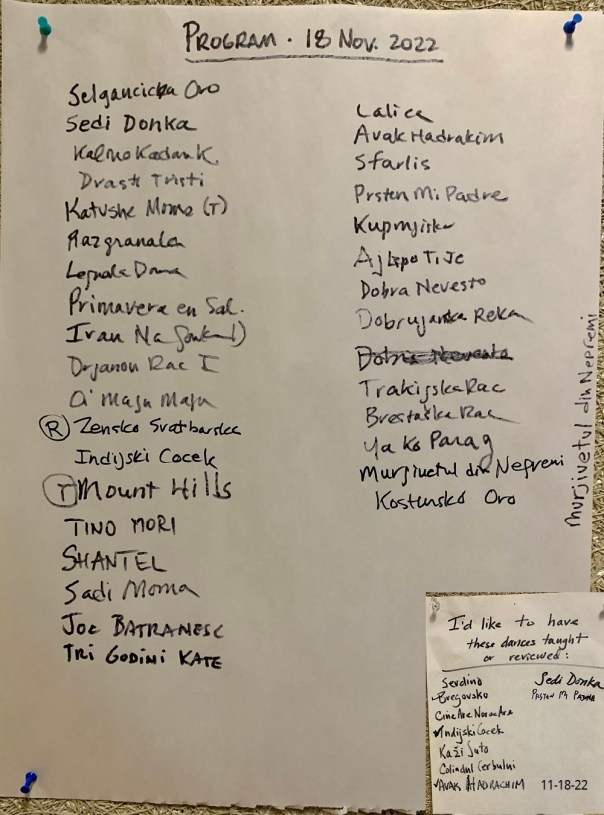 PROGRAM · 18 NOV. 2022
Selgancicka Oro
Sedi Donka
Kalmo Kadan K.
Drast Tristi
Katushe Mome (T)
Razgranala
Legnala Dana
Primavera en Sal.
Ivan Na
Drjanou Rac I
Oi Maju Maju
(R) Zensko Svatbarska
Indijski Cocek
(T) Mount Hills
TINO MORI
SHANTEL
Sadi Moma
JOC BATRANESC
TRI GODINI KATE
Lalica
Avak Hadrakim
Sfarlis
Prsten Mi Padre
Aj Lepo Ti Je
Dobra Nevesto
Dobrujanska Reka
Trakijska Rac
Brestaska Rac
Ya Ko Parag
Murjivetul din Nepremi
Kostensko Oro
Murjivetul din Nepremi
I'd like to have
these dances taught
or reviewed:
Serdino
Bregovsko
Cine Are Noroc Are
Indijski Cocek
Kaži Suto
Colindul Cerbului
AVAK HADRACHIM
Sedi Donka
PRSTEN MI PADNA
11-18-22